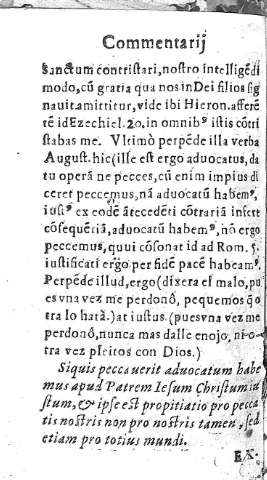 Commentarij
sanctum contristari, nostro intelligẽdi
modo, cũ gratia qua nos in Dei filios sig
nauit amittitur, vide ibi Hieron. afferẽ
tẽ id Ezechiel. 20. in omnibꝰ istis cõtri
stabas me. Vltimò perpẽde illa verba
August. hic (ille est ergo aduocatus, da
tu operã ne pecces, cũ enim impius di
ceret peccemus, nã aduocatũ habemꝰ,
iustꝰ ex eodẽ ãtecedẽti cõtrariã infert
cõsequẽtiã, aduocatũ habemꝰ, nõ ergo
peccemus, quui cõsonat id ad Rom. 5.
iustificati ergo per fidẽ pacẽ habeamꝰ.
Perpẽde illud, ergo (dixera el malo, pu
es vna vez me perdonò, pequemos q̃o
tra lo hatà.) at iustus. (pues vna vez me
perdonò, nunca mas dalle enojo, ni o-
tra vez pleitos con Dios.)
Siquis peccauerit aduocatum habe
mus apud Patrem Iesum Christum iu
stum, & ipse est propitiatio pro pecca
tis nostris non pro nostris tamen, sed
etiam pro totius mundi.
EX-